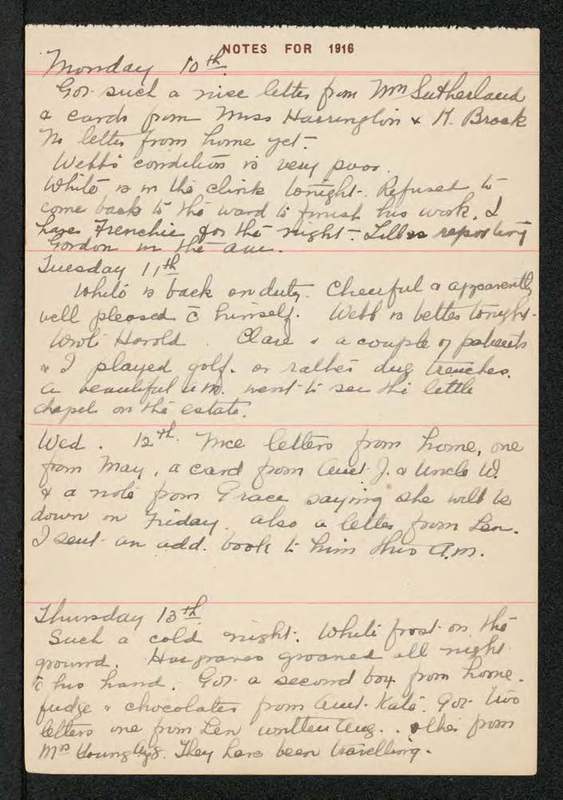 NOTES FOR 1916
Monday 10th.
Got such a nice letter from Mrs Sutherland
& cards from Miss Harrington & M. Brock
No letter from home yet.
Webb's condition is very poor.
White is in the clink tonight. Refused to
come back to the ward to finish his work. I
have Frenchie for the night. Lilles reporting
Gordon in the am.
Tuesday 11th
White is back on duty. Cheerful & apparently
well pleased c̄ himself. Webb is better tonight.
Wrote Harold. Clare & a couple of patients
& I played golf. or rather dug trenches.
a beautiful a.m. went to see the little
chapel on the estate.
Wed. 12th. Nice letters from home, one
from May, a card from Aunt J. & Uncle W.
& a note from Grace saying she will be
down on Friday. also a letter from Len.
I sent an add. book to him this a.m.
Thursday 13th
Such a cold night. White frost on the
ground. Hargraves groaned all night
c̄ his hand. Got a second box from home.
fudge & chocolates from Aunt Kate. Got two
letters one from Len written Aug. . other from
Mrs Young Aug. They have been travelling.